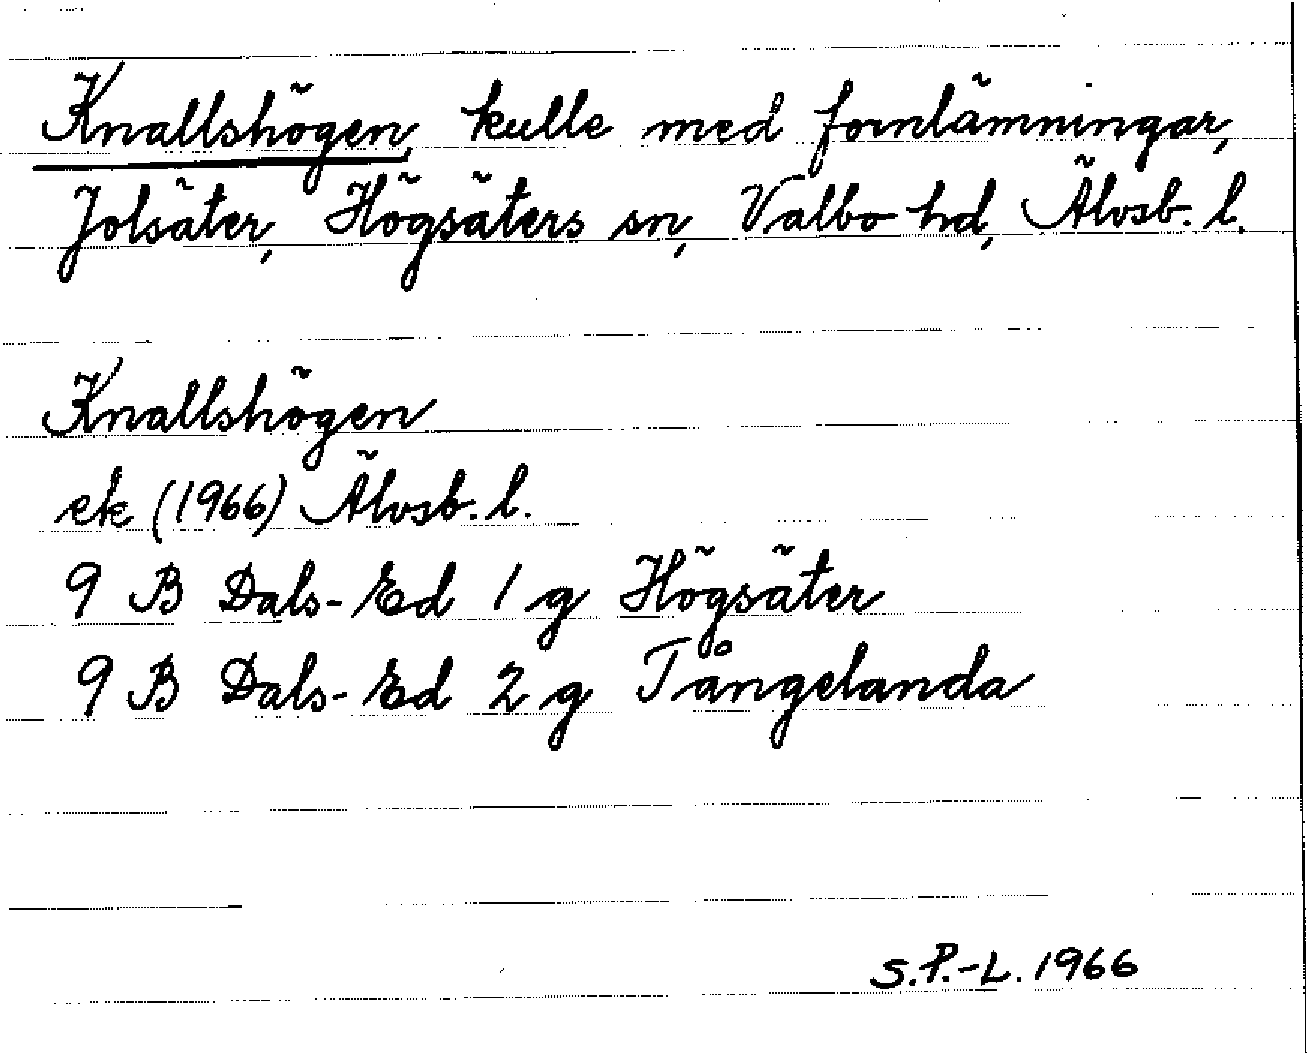 Knallshögen, kulle med fornlämningar,
Jolsäter, Högsäters sn, Valbo hd, Älvsb. l.
Knallshögen
ek (1966) Älvsb. l.
9 B Dals-Ed 1 g Högsäter
9 B Dals-Ed 2 g Tångelanda
S.P.-L. 1966